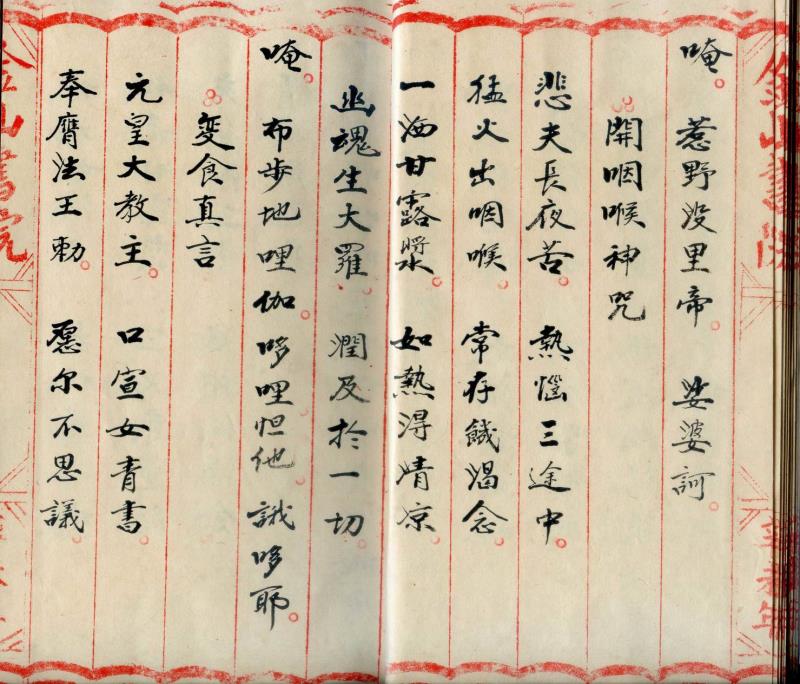 唵。惹野没里帝。娑婆訶。
開咽喉神咒
悲夫長夜苦。熱惱三途中。
猛火出咽喉。常存饑渴念。
一洒甘露漿。如熱得清凉。
幽魂生大羅 潤及於一切
唵。布步地哩伽哆哩怛他誐哆耶。
变食真言
元皇大教主。口宣女青書。
奉膺法王勅。愿尔不思議。